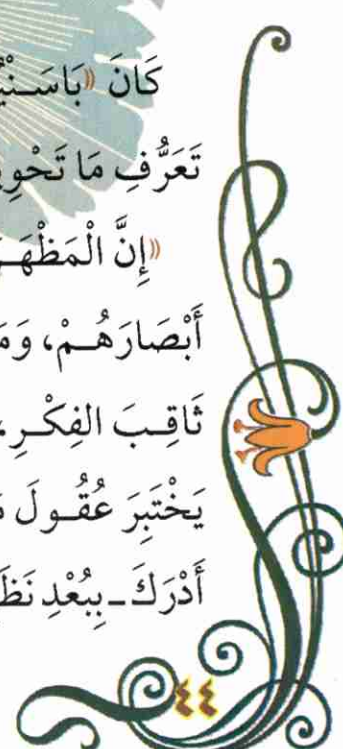 كَانَ «بَاسَنْيُ
تَعَرُّفِ مَا تَحْوِي
«إِنَّ الْمَظْهَـ
أَبْصَارَهُـمْ، وَمَـ
ثَاقِـبَ الفِكْـرِ،
يَخْتَبِرَ عُقُـولَ
أَدْرَكَ ـ بِبُعْدِ نَظَـ
٤٤